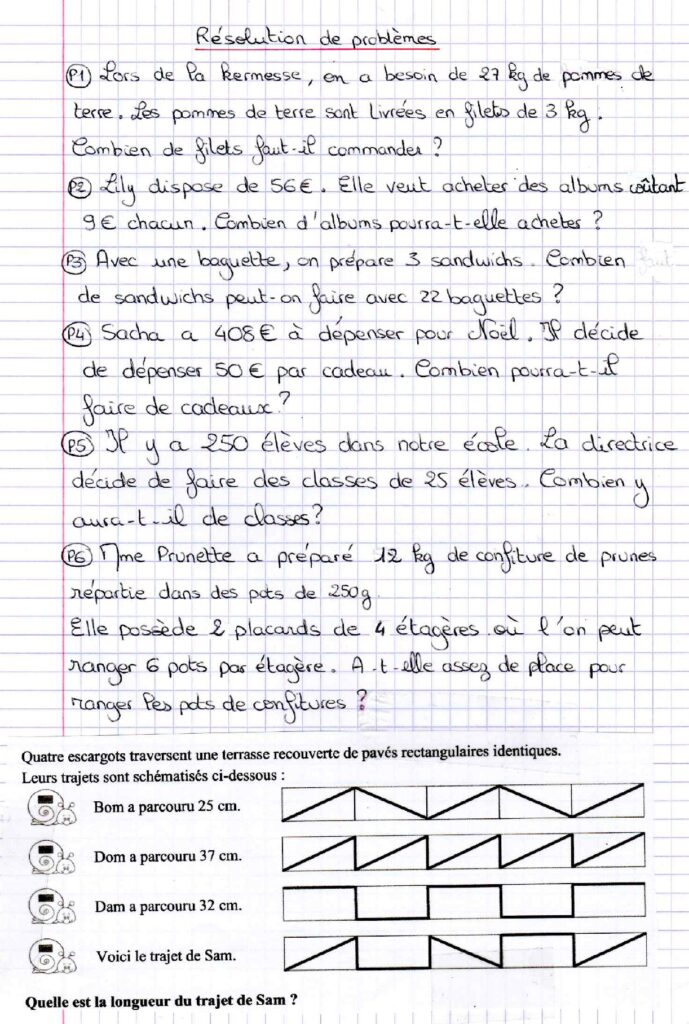 Résolution de problèmes
P1 Lors de la kermesse, on a besoin de 27 kg de pommes de
terre. Les pommes de terre sont livrées en filets de 3 kg.
Combien de filets faut-il commander ?
P2 Lily dispose de 56€. Elle veut acheter des albums coûtant
9€ chacun. Combien d'albums pourra-t-elle acheter ?
P3 Avec une baguette, on prépare 3 sandwichs. Combien
de sandwichs peut-on faire avec 22 baguettes ?
P4 Sacha a 408€ à dépenser pour Noël. Il décide
de dépenser 50€ par cadeau. Combien pourra-t-il
faire de cadeaux ?
P5 Il y a 250 élèves dans notre école. La directrice
décide de faire des classes de 25 élèves. Combien y
aura-t-il de classes ?
P6 Mme Prunette a préparé 12 kg de confiture de prunes
répartie dans des pots de 250g.
Elle possède 2 placards de 4 étagères où l'on peut
ranger 6 pots par étagère. A-t-elle assez de place pour
ranger les pots de confitures ?
Quatre escargots traversent une terrasse recouverte de pavés rectangulaires identiques.
Leurs trajets sont schématisés ci-dessous :
Bom a parcouru 25 cm.
Dom a parcouru 37 cm.
Dam a parcouru 32 cm.
Voici le trajet de Sam.
Quelle est la longueur du trajet de Sam ?